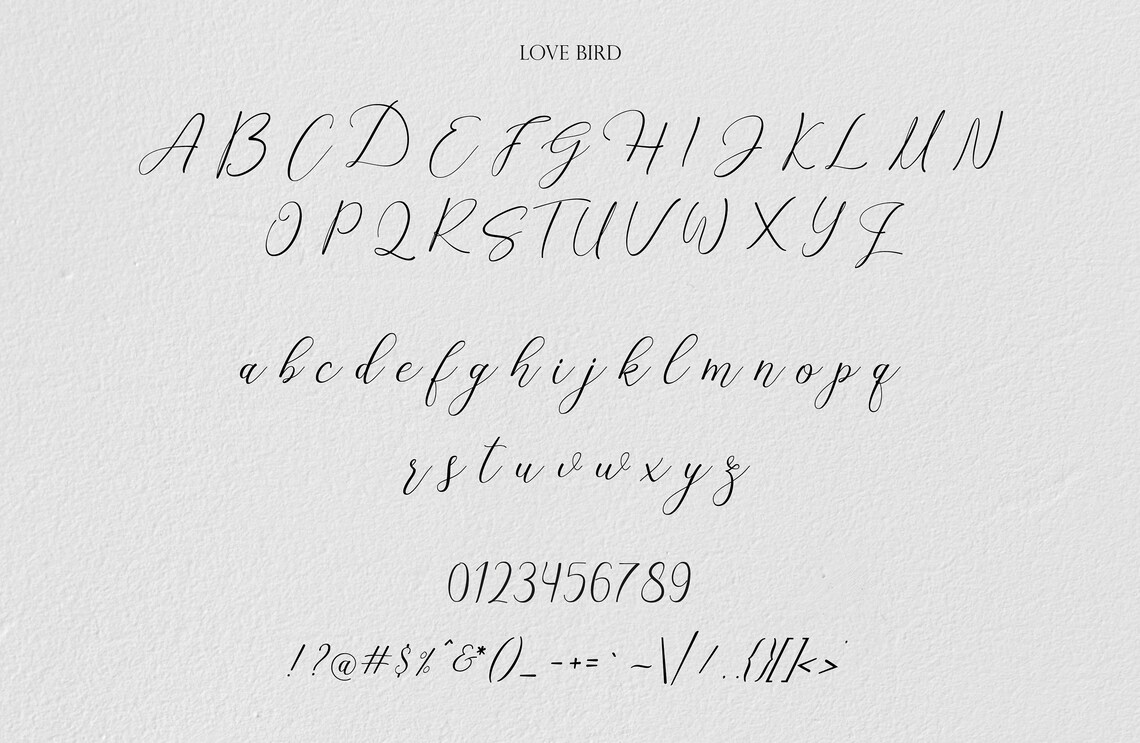 LOVE BIRD
A B C D E F G H I J K L M N
O P Q R S T U V W X Y Z
a b c d e f g h i j k l m n o p q
r s t u v w x y z
0123456789
!?@#$%^&*()_-+=`~\|/.,{}[]<>